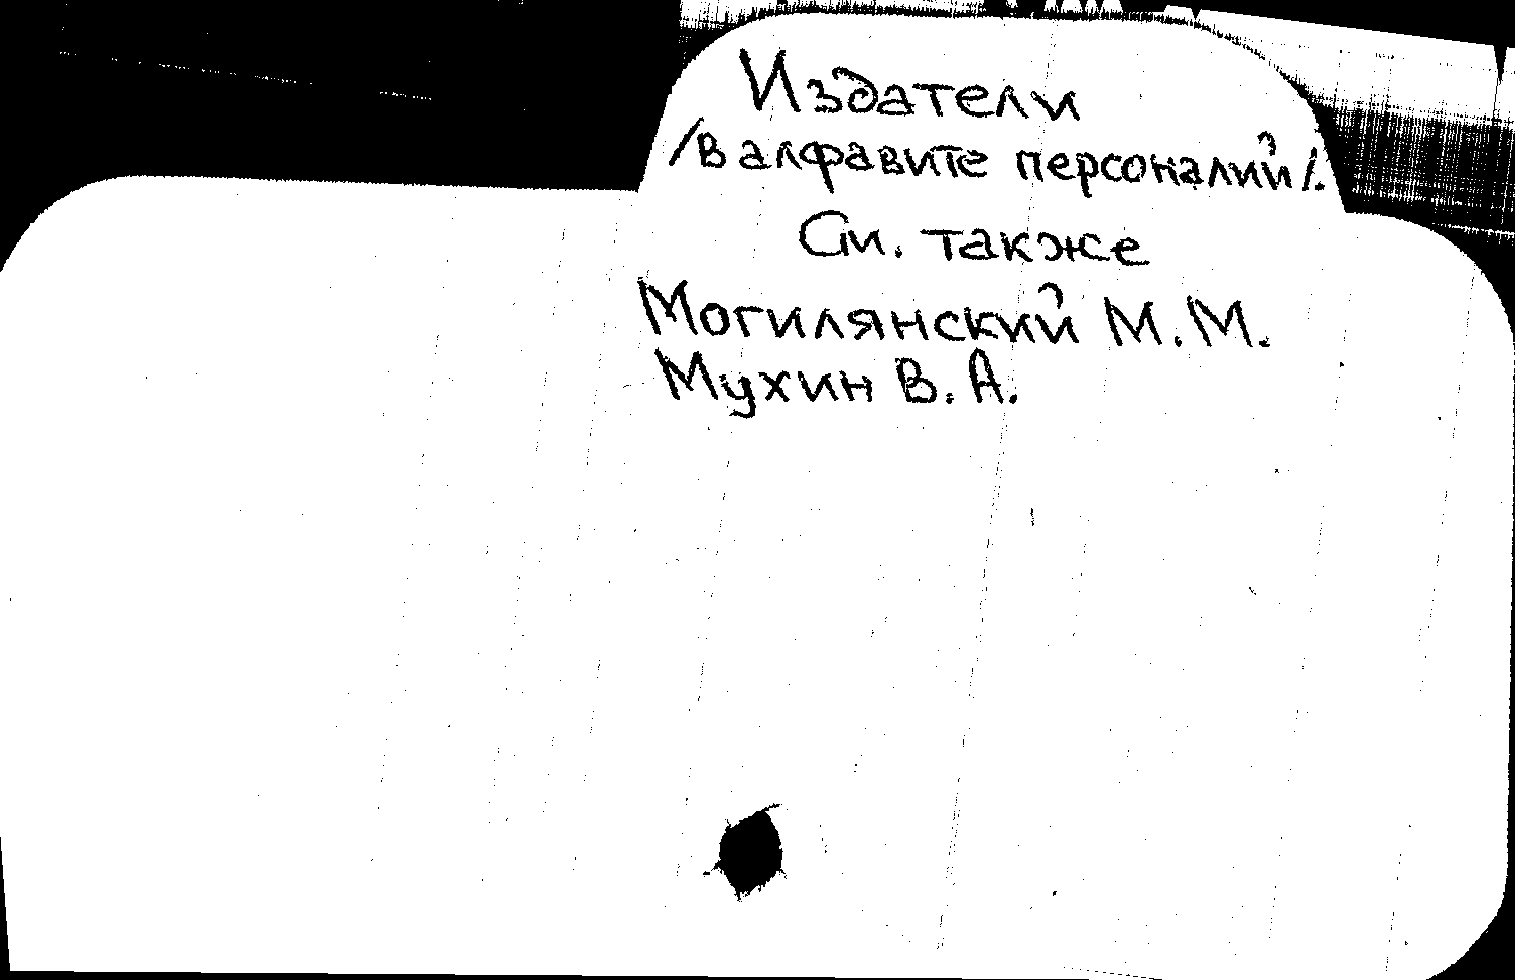 Издатели
/в алфавите персоналий/.
См. также
Могилянский М.М.
Мухин В.А.